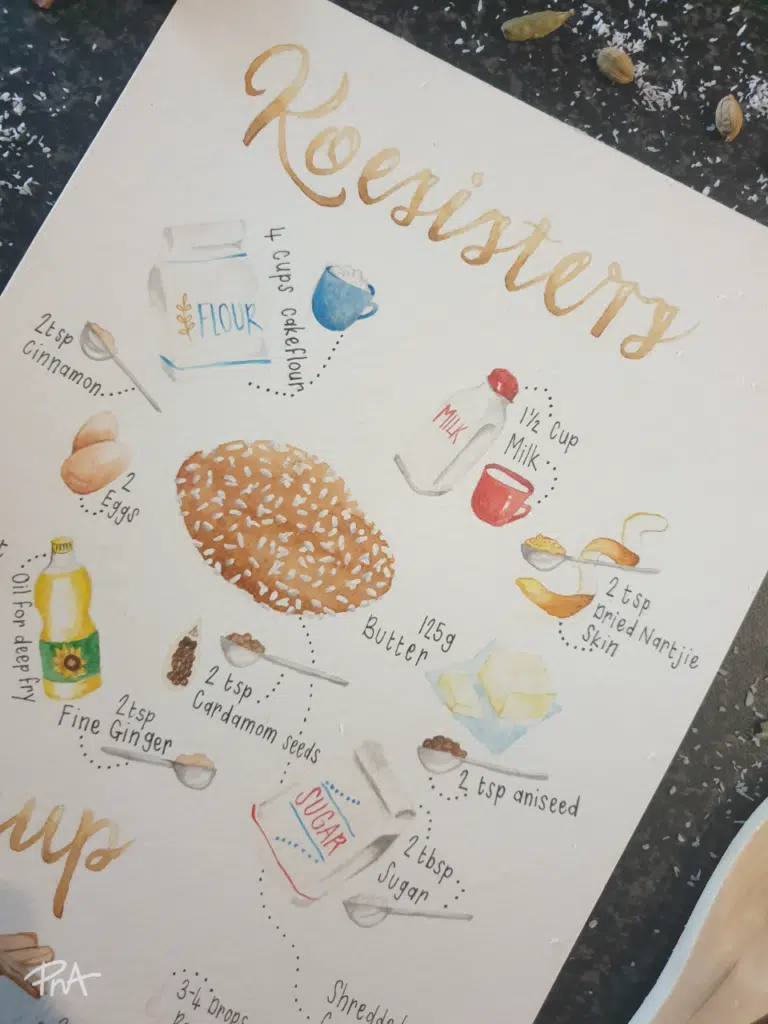 Koesisters
4 cups cakeflour
FLOUR
2tsp
Cinnamon
1½ Cup
Milk
MILK
2
Eggs
2 tsp
Dried Nartjie
Skin
Oil for deep fry
125g
Butter
2 tsp
Cardamom seeds
2tsp
Fine Ginger
2 tsp aniseed
SUGAR
2 tbsp
Sugar
up
3-4 Drops
PnA